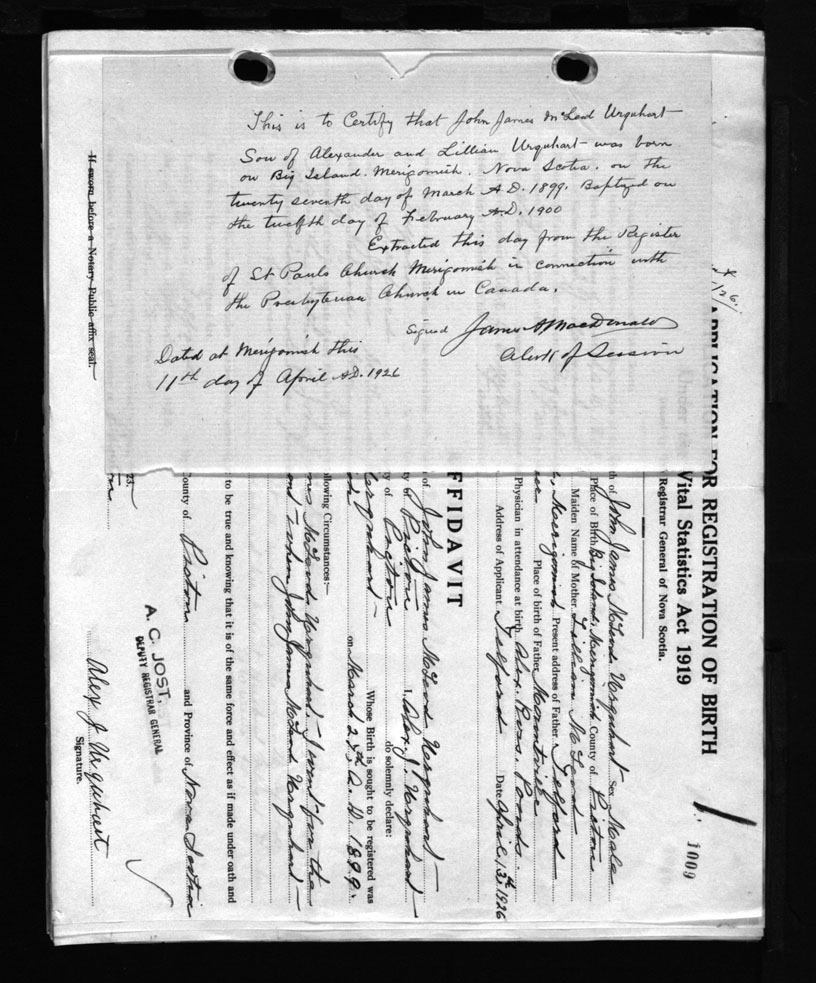 This is to Certify that John James McLeod Urquhart
Son of Alexander and Lillian Urquhart was born
on Big Island. Merigomish. Nova Scotia. on the
twenty seventh day of March A.D. 1899. Baptized on
the twelfth day of February A.D. 1900
Extracted this day from the Register
of St Pauls Church Merigomish in connection with
the Presbyterian Church in Canada.
Signed James A MacDonald
Clerk of Session
Dated at Merigomish this
11th day of April A.D. 1926
1009
APPLICATION FOR REGISTRATION OF BIRTH
Vital Statistics Act 1919
Registrar General of Nova Scotia.
th of John James McLeod Urquhart Sex Male
Place of Birth Big Island, Merigomish County of Pictou
Maiden Name of Mother Lillian McLeod
Merigomish Present address of Father Telford
Place of birth of Father
Physician in attendance at birth
Address of Applicant Telford Date April 13th 1926
FFIDAVIT
of John James McLeod Urquhart
of Pictou I, Alex J. Urquhart
y of Pictou do solemnly declare:
Urquhart Whose Birth is sought to be registered was
on March 27th A.D. 1899.
ollowing Circumstances:—
McLeod Urquhart, I went for the
when John James McLeod Urquhart
to be true and knowing that it is of the same force and effect as if made under oath and
County of Pictou and Province of Nova Scotia
A. C. JOST,
DEPUTY REGISTRAR GENERAL
23.
Alex J Urquhart
Signature.
If sworn before a Notary Public affix seal.